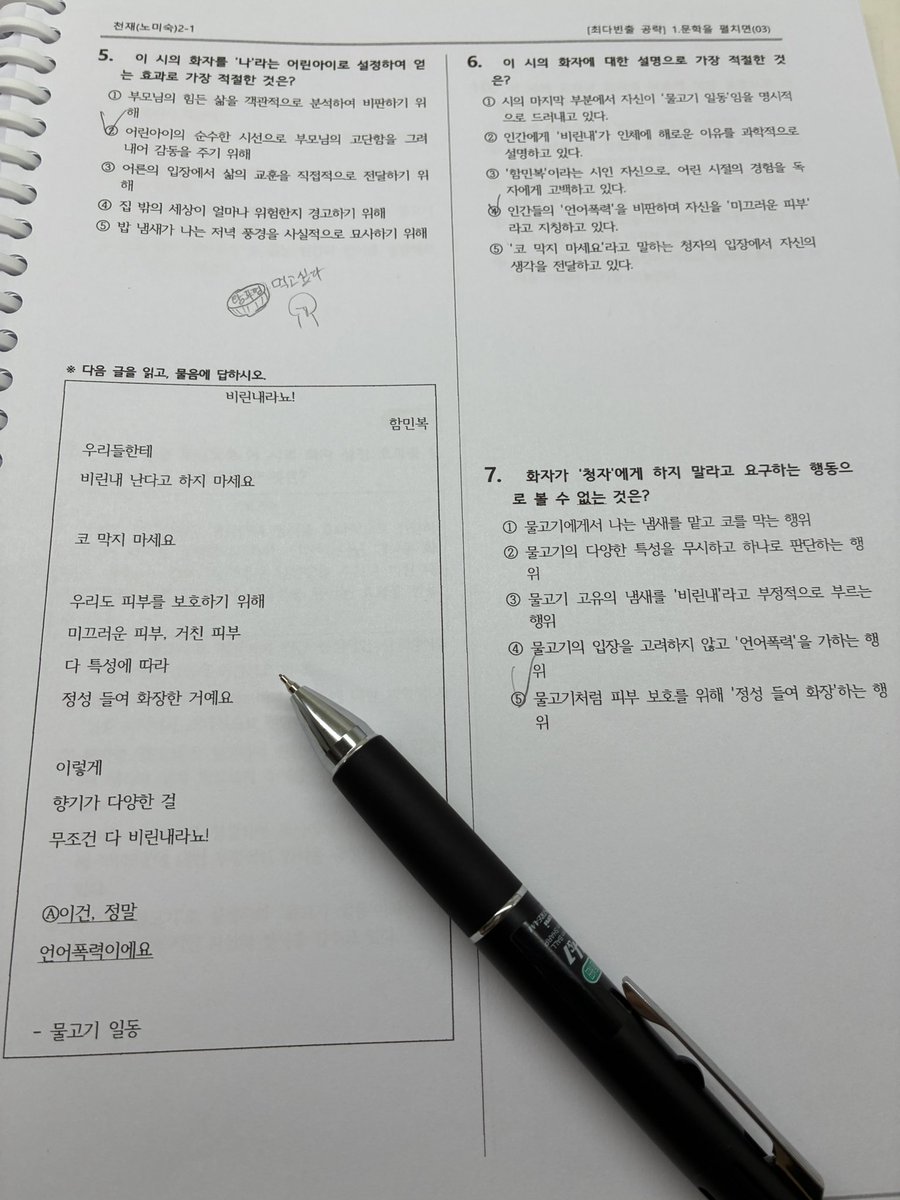 천재(노미숙)2-1
[최다빈출 공략] 1.문학을 펼치면(03)
5. 이 시의 화자를 '나'라는 어린아이로 설정하여 얻
는 효과로 가장 적절한 것은?
① 부모님의 힘든 삶을 객관적으로 분석하여 비판하기 위
해
② 어린아이의 순수한 시선으로 부모님의 고단함을 그려
내어 감동을 주기 위해
③ 어른의 입장에서 삶의 교훈을 직접적으로 전달하기 위
해
④ 집 밖의 세상이 얼마나 위험한지 경고하기 위해
⑤ 밥 냄새가 나는 저녁 풍경을 사실적으로 묘사하기 위해
먹고싶다
※ 다음 글을 읽고, 물음에 답하시오.
비린내라뇨!
함민복
우리들한테
비린내 난다고 하지 마세요
코 막지 마세요
우리도 피부를 보호하기 위해
미끄러운 피부, 거친 피부
다 특성에 따라
정성 들여 화장한 거예요
이렇게
향기가 다양한 걸
무조건 다 비린내라뇨!
Ⓐ이건, 정말
언어폭력이에요
- 물고기 일동
6. 이 시의 화자에 대한 설명으로 가장 적절한 것
은?
① 시의 마지막 부분에서 자신이 '물고기 일동'임을 명시적
으로 드러내고 있다.
② 인간에게 '비린내'가 인체에 해로운 이유를 과학적으로
설명하고 있다.
③ '함민복'이라는 시인 자신으로, 어린 시절의 경험을 독
자에게 고백하고 있다.
④ 인간들의 '언어폭력'을 비판하며 자신을 '미끄러운 피부'
라고 지칭하고 있다.
⑤ '코 막지 마세요'라고 말하는 청자의 입장에서 자신의
생각을 전달하고 있다.
7. 화자가 '청자'에게 하지 말라고 요구하는 행동으
로 볼 수 없는 것은?
① 물고기에게서 나는 냄새를 맡고 코를 막는 행위
② 물고기의 다양한 특성을 무시하고 하나로 판단하는 행
위
③ 물고기 고유의 냄새를 '비린내'라고 부정적으로 부르는
행위
④ 물고기의 입장을 고려하지 않고 '언어폭력'을 가하는 행
위
⑤ 물고기처럼 피부 보호를 위해 '정성 들여 화장'하는 행
위